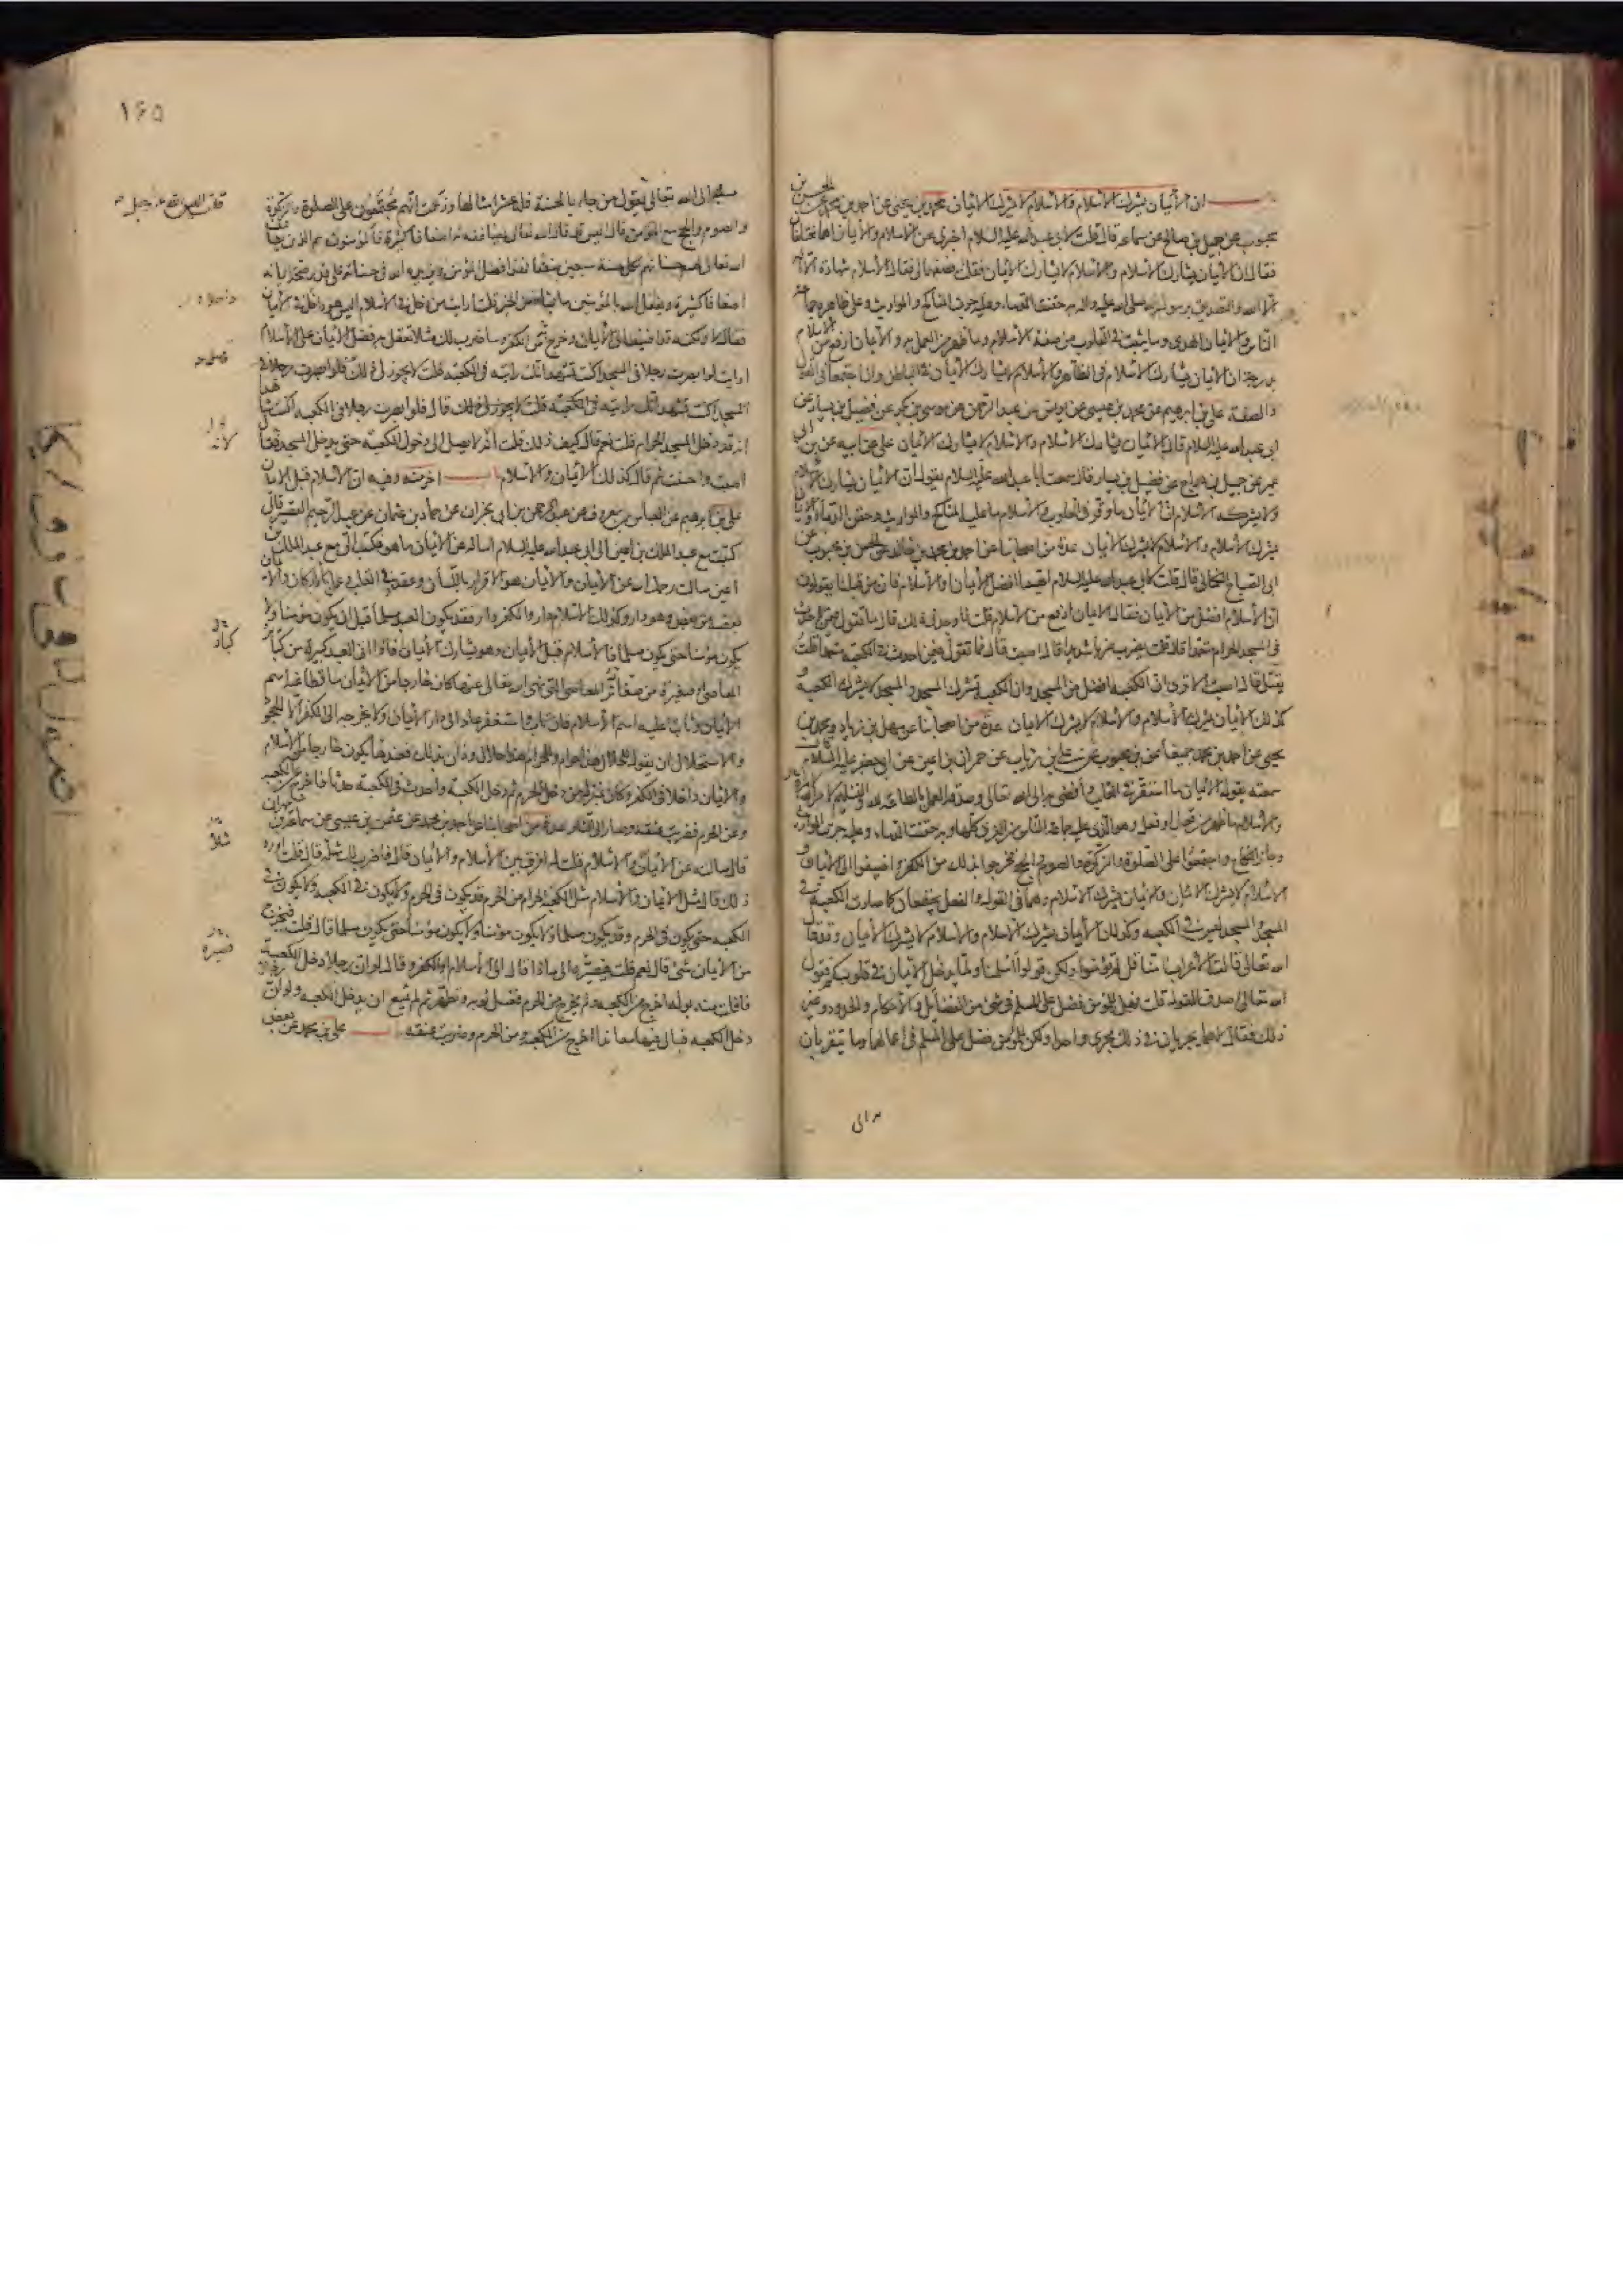 ان الأيمان يشرك الأسلام والأسلام لا يشرك الأيمان محمد بن يحيى عن احمد بن محمد عن الحسن بن
محبوب عن جميل بن صالح عن سماعة قال قلت لابي عبد الله عليه السلام اخبرني عن الاسلام والأيمان اهما مختلفان
فقال ان الأيمان يشارك الأسلام والأسلام لا يشارك الأيمان فقلت فصفهما لي فقال الأسلام شهادة ان لا اله
الا الله والتصديق برسول الله صلى الله عليه واله به حقنت الدماء وعليه جرت المناكح والمواريث وعلى ظاهره جماعة
الناس والأيمان الهدى وما يثبت في القلوب من صفة الأسلام وما ظهر من العمل به والأيمان ارفع من الاسلام
بدرجة ان الأيمان يشارك الأسلام في الظاهر والأسلام لا يشارك الأيمان في الباطن وان اجتمعا في القول
والصفة علي بن ابراهيم عن محمد بن عيسى عن يونس بن عبد الرحمن عن موسى بن بكر عن فضيل بن يسار عن
ابي عبد الله عليه السلام قال الأيمان يشارك الأسلام والأسلام لا يشارك الأيمان علي عن ابيه عن ابن ابي
عمير عن جميل بن دراج عن فضيل بن يسار قال سمعت ابا عبد الله عليه السلام يقول ان الأيمان يشارك الاسلام
ولا يشركه الأسلام ان الأيمان ما وقر في القلوب والأسلام ما عليه المناكح والمواريث وحقن الدماء والأيمان
يشرك الأسلام والأسلام لا يشرك الأيمان عدة من اصحابنا عن احمد بن محمد بن خالد عن الحسن بن محبوب عن
ابي الصباح الكناني قال قلت لابي عبد الله عليه السلام ايهما افضل الأيمان او الأسلام فان من قبلنا يقولون
ان الأسلام افضل من الأيمان فقال الأيمان ارفع من الأسلام قلت فاوجدني ذلك قال ما تقول فيمن احدث
في المسجد الحرام متعمدا قال قلت يضرب ضربا شديدا قال اصبت قال فما تقول فيمن احدث في الكعبة متعمدا قلت
يقتل قال اصبت الا ترى ان الكعبة افضل من المسجد وان الكعبة تشرك المسجد والمسجد لا يشرك الكعبة و
كذلك الأيمان يشرك الأسلام والأسلام لا يشرك الأيمان عدة من اصحابنا عن سهل بن زياد ومحمد بن
يحيى عن احمد بن محمد جميعا عن ابن محبوب عن علي بن رئاب عن حمران بن اعين عن ابي جعفر عليه السلام قال
سمعته يقول الأيمان ما استقر في القلب وافضى به الى الله تعالى وصدقه العمل بالطاعة لله والتسليم لامر الله
والأسلام ما ظهر من قول او فعل وهو الذي عليه جماعة الناس من الفرق كلها وبه حقنت الدماء وعليه جرت المواريث
وجاز النكاح واجتمعوا على الصلوة والزكوة والصوم والحج فخرجوا بذلك من الكفر واضيفوا الى الأيمان و
الاسلام لا يشرك الأيمان والأيمان يشرك الأسلام وهما في القول والفعل يجتمعان كما صارت الكعبة في
المسجد والمسجد ليس في الكعبة وكذلك الأيمان يشرك الأسلام والأسلام لا يشرك الأيمان وقد قال
الله تعالى قالت الأعراب آمنا قل لم تؤمنوا ولكن قولوا أسلمنا ولما يدخل الأيمان في قلوبكم فقول
الله تعالى اصدق القول قلت فهل للمؤمن فضل على المسلم في شيء من الفضايل والأحكام والحدود وغير
ذلك فقال لا هما يجريان في ذلك مجرى واحدا ولكن للمؤمن فضل على المسلم في اعمالهما وما يتقربان
به الى
١٦٥
به الى الله تعالى يقول من جاء بالحسنة فله عشر امثالها وزعمت انهم مجتمعون على الصلوة والزكوة
والصوم والحج مع المؤمن قال اليس قد قال الله تعالى يضاعفه له اضعافا كثيرة فالمؤمنون هم الذين يضاعف
الله تعالى لهم حسناتهم لكل حسنة سبعين ضعفا فهذا فضل المؤمن ويزيده الله في حسناته على قدر صحة ايمانه
اضعافا كثيرة ويفعل الله بالمؤمنين ما يشاء من الخير قلت ارايت من دخل في الأسلام اليس هو داخلا في الأيمان
فقال لا ولكنه قد اضيف الى الأيمان وخرج من الكفر وساضرب لك مثلا تعقل به فضل الأيمان على الأسلام
ارايت لو ابصرت رجلا في المسجد اكنت تشهد انك رايته في الكعبة قلت لا يجوز لي ذلك قال فلو ابصرت رجلا في
المسجد اكنت تشهد انك رايته في الكعبة قلت لا يجوز لي ذلك قال فلو ابصرت رجلا في الكعبة اكنت شاهدا
انه قد دخل المسجد الحرام قلت نعم قال كيف ذلك قلت انه لا يصل الى دخول الكعبة حتى يدخل المسجد فقال
اصبت واحسنت ثم قال كذلك الأيمان والأسلام اخر منه وفيه ان الأسلام قبل الأيمان
علي بن ابراهيم عن العباس بن معروف عن عبد الرحمن بن ابي نجران عن حماد بن عثمان عن عبد الرحيم القصير قال
كتبت مع عبد الملك بن اعين الى ابي عبد الله عليه السلام اساله عن الأيمان ما هو فكتب الي مع عبد الملك بن
اعين سالت رحمك الله عن الأيمان والأيمان هو الاقرار باللسان وعقد في القلب وعمل بالاركان والأيمان
بعضه من بعض وهو دار وكذلك الاسلام دار والكفر دار فقد يكون العبد مسلما قبل ان يكون مؤمنا ولا
يكون مؤمنا حتى يكون مسلما فالأسلام قبل الأيمان وهو يشارك الأيمان فاذا اتى العبد كبيرة من كبائر
المعاصي او صغيرة من صغائر المعاصي التي نهى الله تعالى عنها كان خارجا من الأيمان ساقطا عنه اسم
الأيمان وثابتا عليه اسم الأسلام فان تاب واستغفر عاد الى دار الأيمان ولا يخرجه الى الكفر الا الجحود
والاستحلال ان يقول للحلال هذا حرام وللحرام هذا حلال ودان بذلك فعندها يكون خارجا من الأسلام
والأيمان داخلا في الكفر وكان بمنزلة من دخل الحرم ثم دخل الكعبة واحدث في الكعبة حدثا فاخرج عن الكعبة
وعن الحرم فضربت عنقه وصار الى النار عدة من اصحابنا عن احمد بن محمد عن عثمن بن عيسى عن سماعة بن مهران
قال سالته عن الأيمان والأسلام قلت له افرق بين الأسلام والأيمان قال فاضرب لك مثله قال قلت اورد
ذلك قال مثل الأيمان والأسلام مثل الكعبة الحرام من الحرم قد يكون في الحرم ولا يكون في الكعبة ولا يكون في
الكعبة حتى يكون في الحرم وقد يكون مسلما ولا يكون مؤمنا ولا يكون مؤمنا حتى يكون مسلما قال قلت فيخرج
من الأيمان شيء قال نعم قلت فيصيره الى ماذا قال الى الأسلام او الكفر وقال لو ان رجلا دخل الكعبة
فافلت منه بوله اخرج من الكعبة ولم يخرج من الحرم فغسل ثوبه وتطهر ثم لم يمنع ان يدخل الكعبة ولو ان رجلا
دخل الكعبة فبال فيها معاندا اخرج من الكعبة ومن الحرم وضربت عنقه علي بن محمد عن بعض